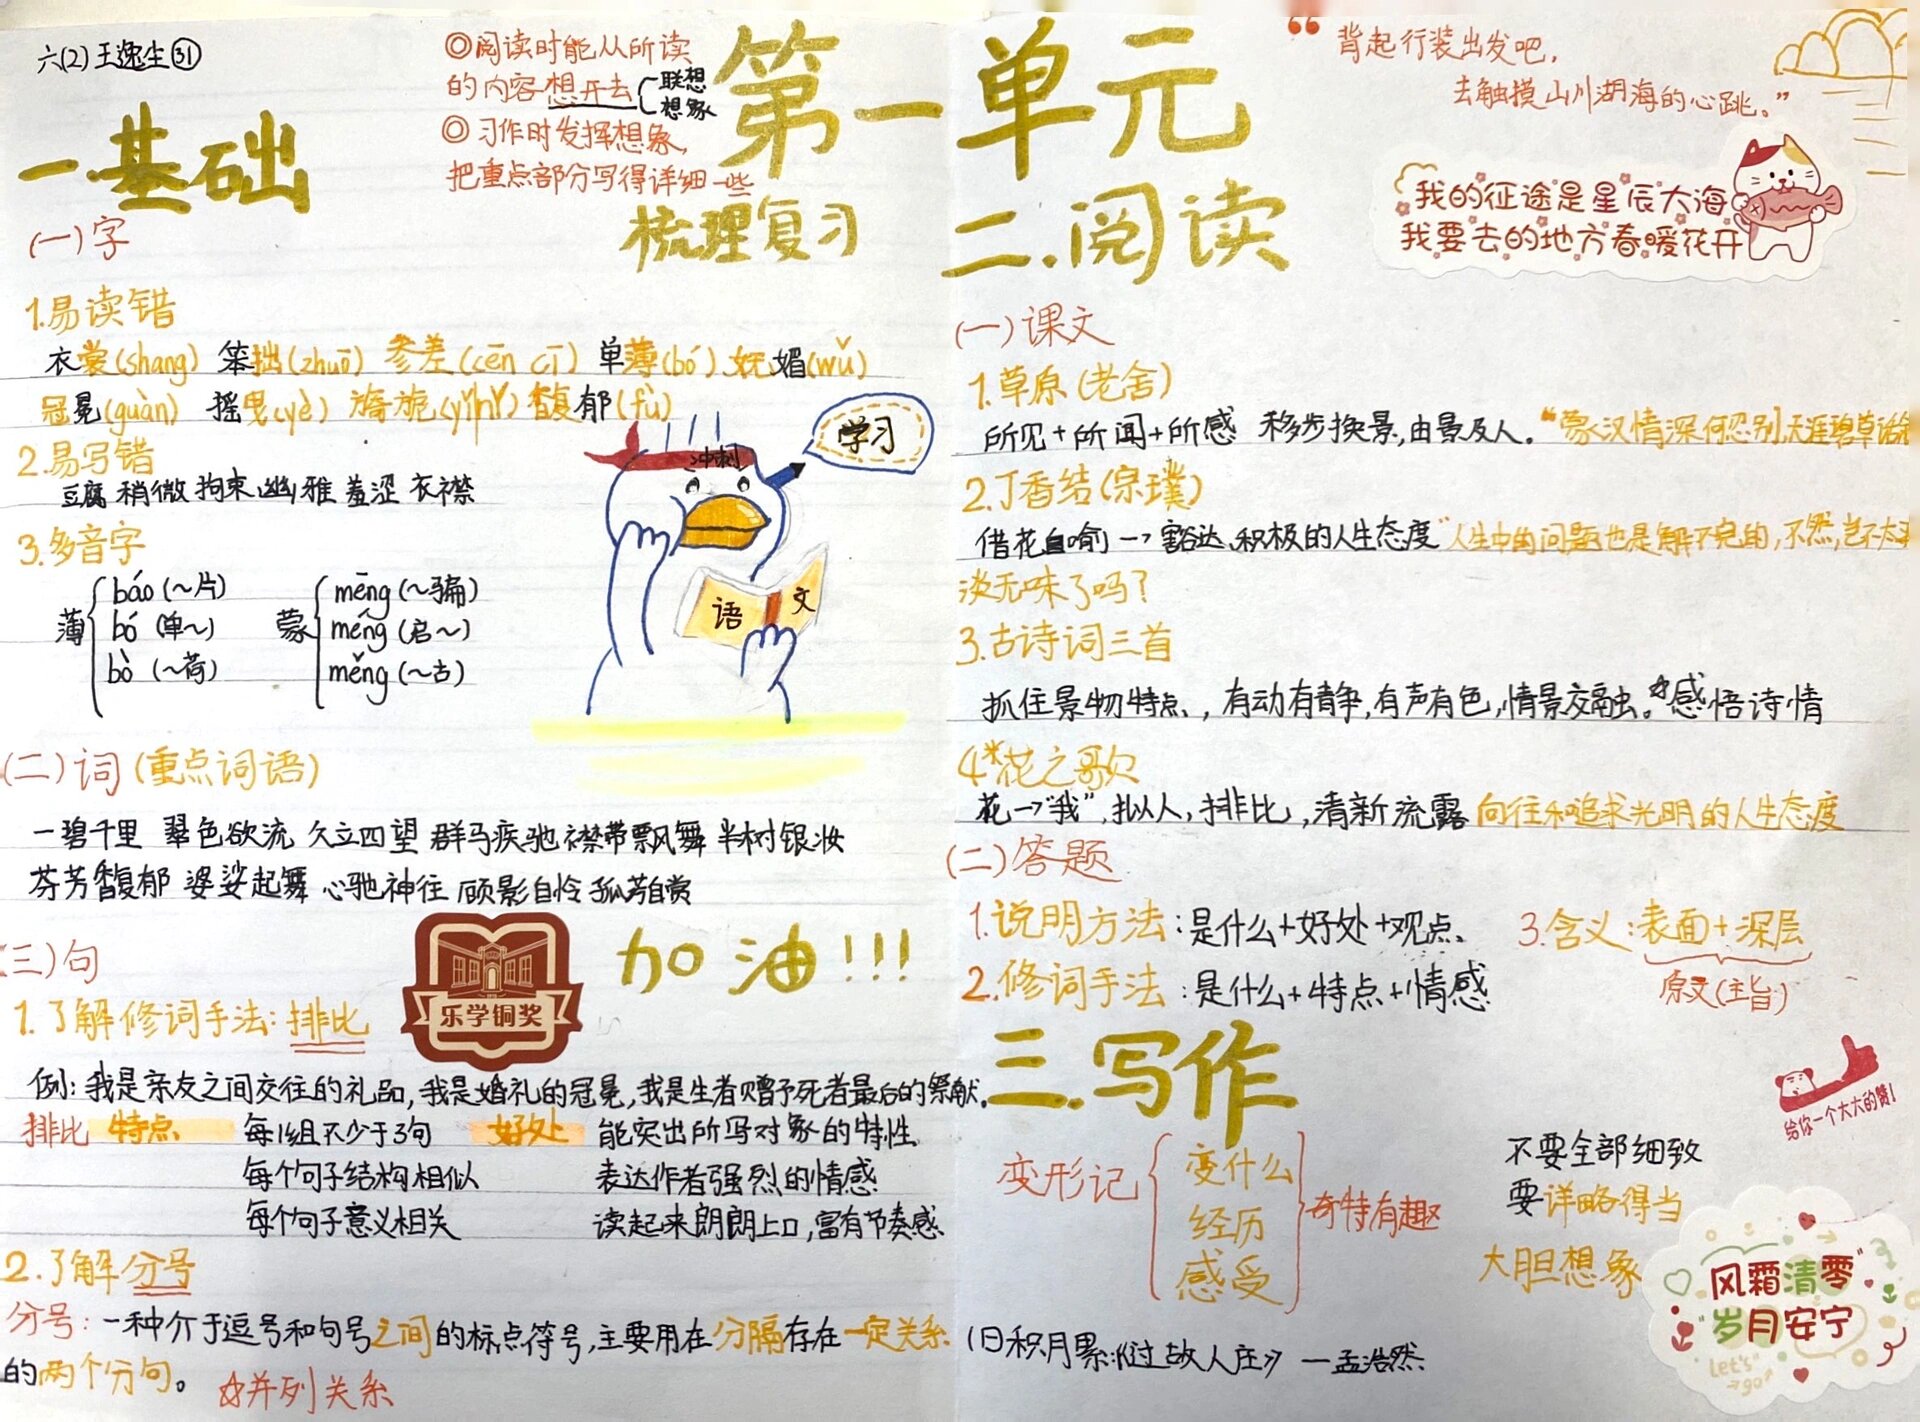 六(2) 王逸尘㉛
◎阅读时能从所读
的内容想开去 联想 想象
◎习作时发挥想象，
把重点部分写得详细一些
第一单元
梳理复习
一.基础
(一)字
1.易读错
衣裳(shang) 笨拙(zhuō) 参差(cēn cī) 单薄(bó) 妩媚(wǔ)
冠冕(guàn) 摇曳(yè) 旖旎(yǐnǐ) 馥郁(fù)
2.易写错
豆腐 稍微 拘束 幽雅 羞涩 衣襟
3.多音字
薄 báo(～片) bó(单～) bò(～荷)
蒙 mēng(～骗) méng(启～) měng(～古)
冲刺
学习
语文
(二)词(重点词语)
一碧千里 翠色欲流 久立四望 群马疾驰 襟带飘舞 半树银妆
芬芳馥郁 婆娑起舞 心驰神往 顾影自怜 孤芳自赏
加油!!!
乐学铜奖
(三)句
1.了解修词手法:排比
例:我是亲友之间交往的礼品,我是婚礼的冠冕,我是生者赠予死者最后的祭献。
排比 特点 每1组不少于3句 好处 能突出所写对象的特性
每个句子结构相似 表达作者强烈的情感
每个句子意义相关 读起来朗朗上口,富有节奏感
2.了解分号
分号:一种介于逗号和句号之间的标点符号,主要用在分隔存在一定关系
的两个分句。 ☆并列关系
“背起行装出发吧，
去触摸山川湖海的心跳。”
我的征途是星辰大海
我要去的地方春暖花开
二.阅读
(一)课文
1.草原(老舍)
所见+所闻+所感 移步换景,由景及人。“蒙汉情深何忍别,天涯碧草话
2.丁香结(宗璞)
借花自喻→豁达、积极的人生态度“人生中的问题也是解不完的,不然,岂不太平
淡无味了吗?
3.古诗词三首
抓住景物特点,有动有静,有声有色,情景交融。☆感悟诗情
4*花之歌
花→“我”,拟人,排比,清新流露 向往和追求光明的人生态度
(二)答题
1.说明方法:是什么+好处+观点。 3.含义:表面+深层
2.修词手法:是什么+特点+情感 原文(主旨)
三.写作
给你一个大大的赞!
变形记 变什么 经历 感受 奇特有趣
不要全部细致
要详略得当
大胆想象
风霜清零
岁月安宁
let's go
(日积月累:《过故人庄》 —孟浩然